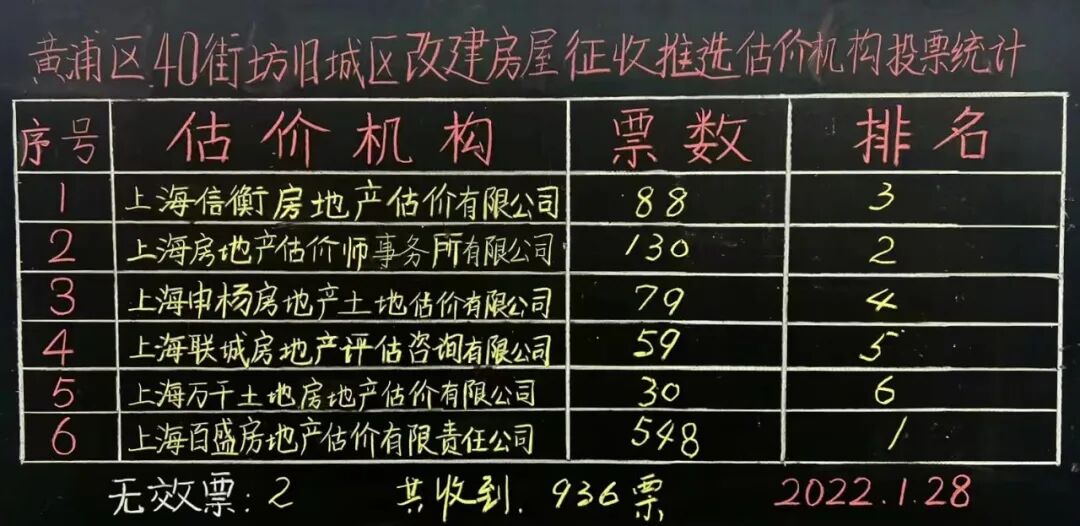 黄浦区40街坊旧城区改建房屋征收推选估价机构投票统计
序号 估价机构 票数 排名
1 上海信衡房地产估价有限公司 88 3
2 上海房地产估价师事务所有限公司 130 2
3 上海申杨房地产土地估价有限公司 79 4
4 上海联城房地产评估咨询有限公司 59 5
5 上海万千土地房地产估价有限公司 30 6
6 上海百盛房地产估价有限责任公司 548 1
无效票:2 共收到.936票 2022.1.28